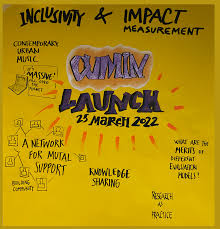 INCLUSIVITY & IMPACT
MEASUREMENT
CONTEMPORARY
URBAN
MUSIC
"MASSIVE"
CUMIN
LAUNCH
25 MARCH 2022
A NETWORK
FOR MUTAL
SUPPORT
BUILDING COMMUNITY
KNOWLEDGE
SHARING
WHAT ARE THE
MERITS OF
DIFFERENT
EVALUATION
MODELS?
RESEARCH
AS
PRACTICE